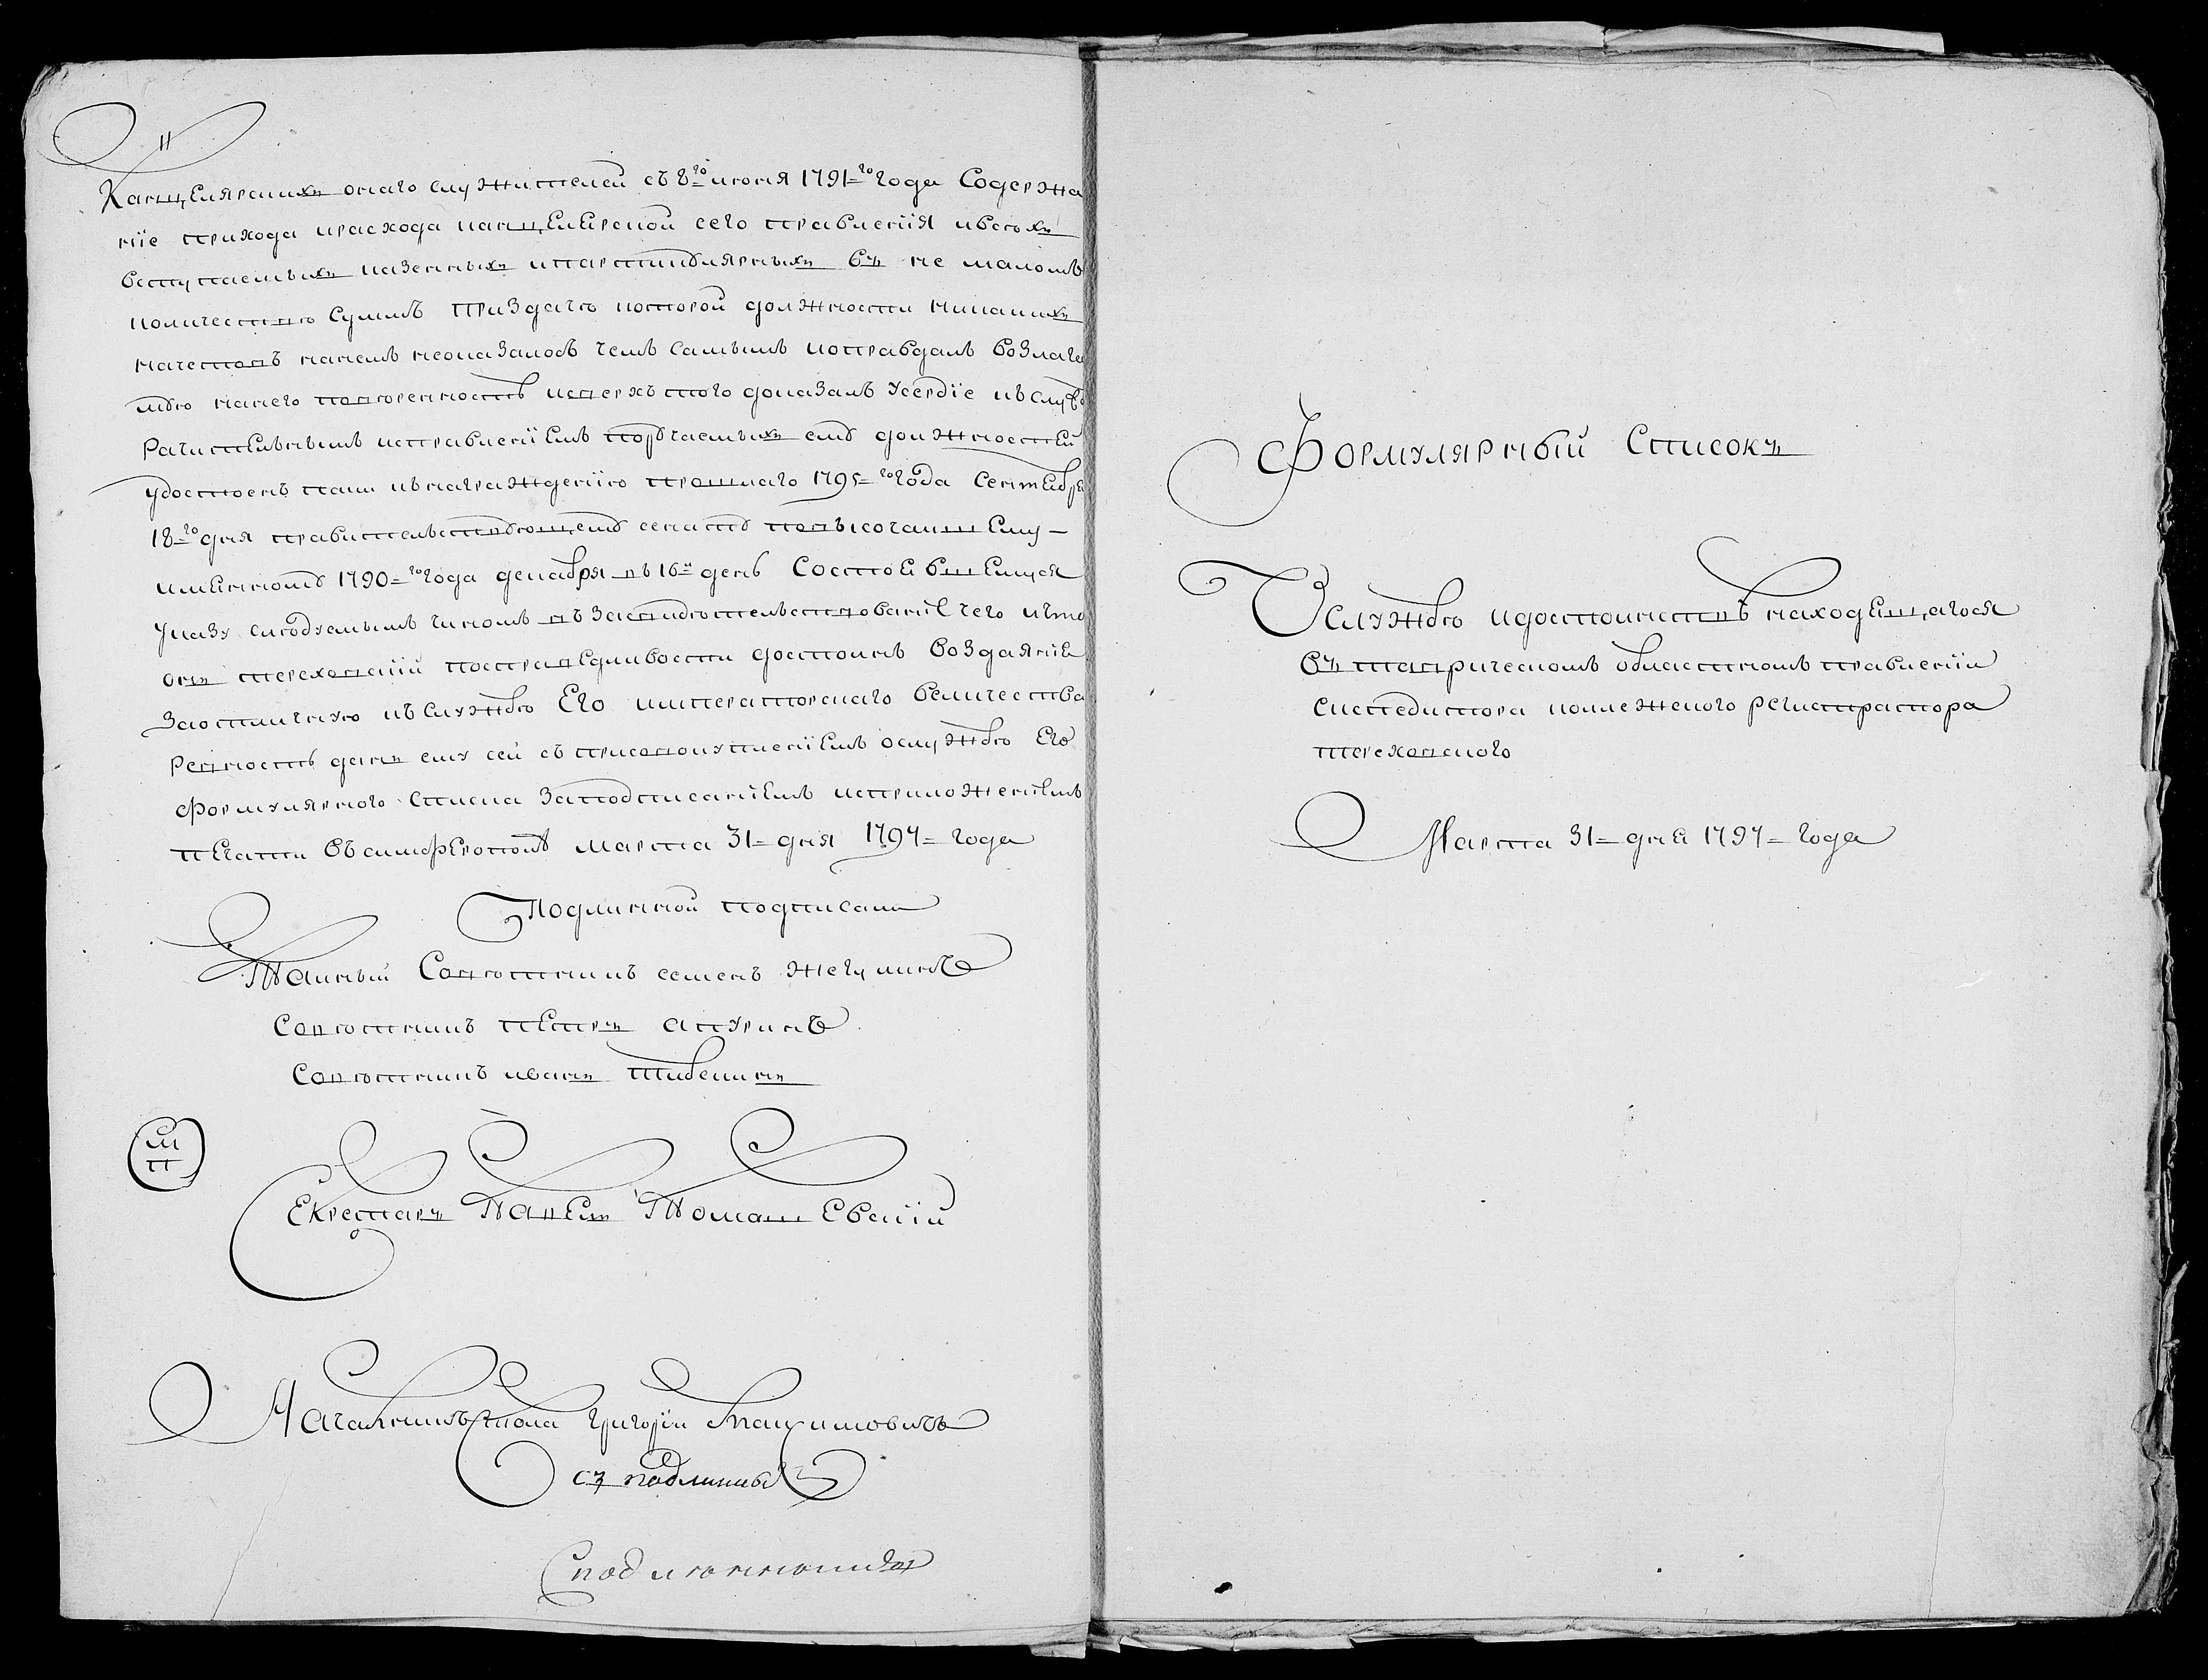 Канцелярскихъ онаго служителей съ 8го июня 1791го года Содержа
ніе прихода ирасхода канцелярской сего правленія ивсехъ
вступаемыхъ казенныхъ ипартикулярныхъ въ не маломъ
количествѣ Суммъ приздачѣ которой должности никакихъ
начетовъ нанемъ неоказалось чемъ самымъ иоправдалъ возлагае
мую нанего повѣренность исверхъ того доказалъ усердіе кслуж
рачительнымъ исправленіемъ поручаемыхъ ему должностей
удостоенъ такъ кънагражденію прошлаго 1795го года Сентября
18го дня правительствующему сенату повысочайшему
имянному 1790го года декабря въ 16й день Состоявшемуся
указу слѣдуемымъ чиномъ въ засвидѣтельствованіе чего ичто
онъ тереховскій посправедливости достоинъ воздаянія
заотличную къслужбѣ Его императорскаго величества
ревность данъ ему сей съ присовокупленіемъ ослужбѣ Его
формулярного списка заподписаніемъ исприложеніемъ
печати въ симферополѣ марта 31 дня 1797 года
Подлинной подписали
Статскій Совѣтникъ семенъ жегулинъ
Совѣтникъ петръ апуринъ
Совѣтникъ иванъ тибекинъ
М
П
Секретарь Павелъ Томашевскій
Начальникъ стола Григорій Максимовичъ
съ подлинны
Формулярный Списокъ
О службѣ идостоинствѣ находящагося
въ таврическомъ областномъ правленіи
Експедитора коллежского регистратора
тереховского
Марта 31 дня 1797 года